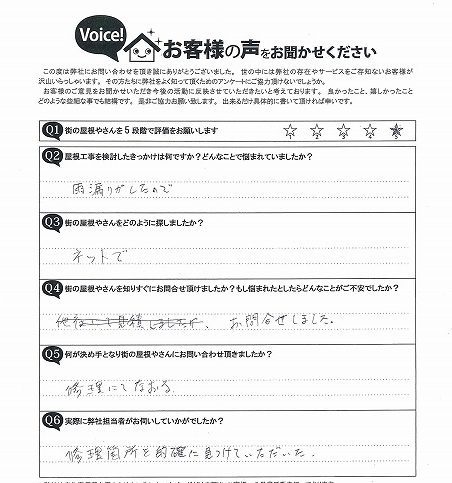 Voice!
お客様の声をお聞かせください
この度は弊社にお問い合わせを頂き誠にありがとうございました。世の中には弊社の存在やサービスをご存知ないお客様が
沢山いらっしゃいます。その方たちに弊社をよく知って頂くためのアンケートにご協力頂けないでしょうか。
お客様のご意見をお聞かせいただき今後の活動に反映させていただきたいと考えております。良かったこと、嬉しかったこと
どのような些細な事でも結構です。是非ご協力お願い致します。出来るだけ具体的に書いて頂ければ幸いです。
Q1 街の屋根やさんを5段階で評価をお願いします
1 2 3 4 5
Q2 屋根工事を検討したきっかけは何ですか?どんなことで悩まれていましたか?
雨漏りがしたので
Q3 街の屋根やさんをどのように探しましたか?
ネットで
Q4 街の屋根やさんを知りすぐにお問合せ頂けましたか?もし悩まれたとしたらどんなことがご不安でしたか?
お問合せしました。
Q5 何が決め手となり街の屋根やさんにお問い合わせ頂きましたか?
修理にてなおる
Q6 実際に弊社担当者がお伺いしていかがでしたか?
修理箇所を的確に見つけていただいた。